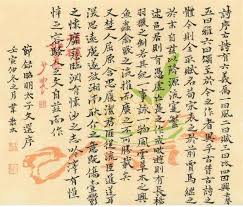 詩序云詩有六義焉一曰風二曰賦三曰比四曰興
五曰雅六曰頌至於今之作者異乎古昔古詩之
體今則全取賦名荀宋表之於前賈馬繼之
於末自茲以降源流寔繁
述邑居則有憑虛亡是之作戒畋游則有長楊
羽獵之制若其紀一事詠一物風雲草木之興
魚蟲禽獸之流推而廣之不可勝載矣又楚
人屈原含忠履潔君匪從流臣進逆耳
深思遠慮遂放湘南耿介之意既傷壹鬱
之懷靡愬臨淵有懷沙之志吟澤有憔
悴之容騷人之文自茲而作
節錄昭明太子文選序
壬寅仲之月